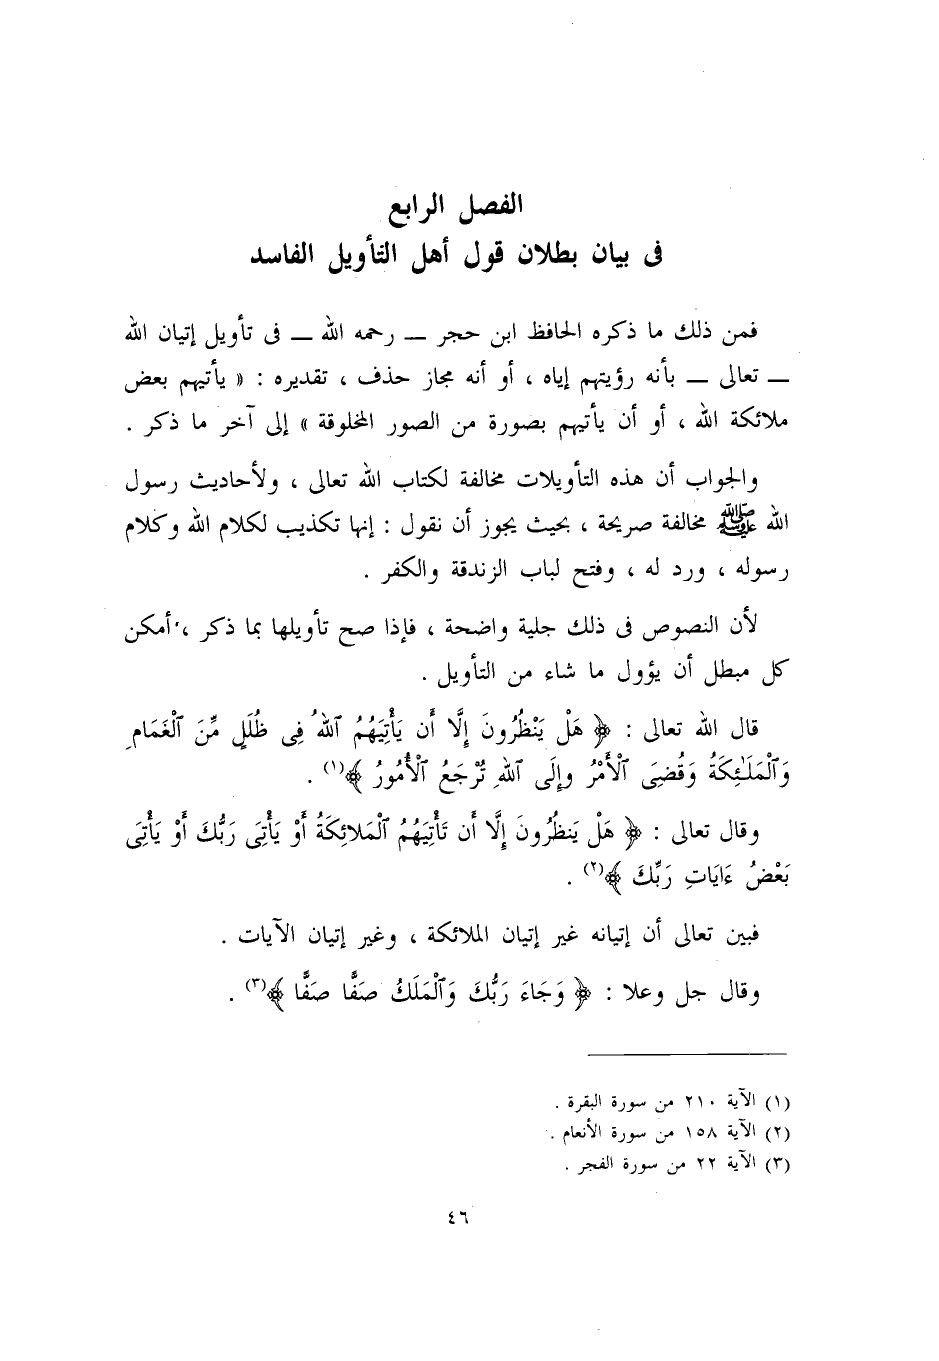 الفصل الرابع
فى بيان بطلان قول أهل التأويل الفاسد
فمن ذلك ما ذكره الحافظ ابن حجر ــ رحمه الله ــ فى تأويل إتيان الله
ــ تعالى ــ بأنه رؤيتهم إياه ، أو أنه مجاز حذف ، تقديره : « يأتيهم بعض
ملائكة الله ، أو أن يأتيهم بصورة من الصور المخلوقة » إلى آخر ما ذكر .
والجواب أن هذه التأويلات مخالفة لكتاب الله تعالى ، ولأحاديث رسول
الله ﷺ مخالفة صريحة ، بحيث يجوز أن نقول : إنها تكذيب لكلام الله وكلام
رسوله ، ورد له ، وفتح لباب الزندقة والكفر .
لأن النصوص فى ذلك جلية واضحة ، فإذا صح تأويلها بما ذكر ، أمكن
كل مبطل أن يؤول ما شاء من التأويل .
قال الله تعالى : ﴿ هَلْ يَنْظُرُونَ إِلَّا أَن يَأْتِيَهُمُ ٱللهُ فِى ظُلَلٍ مِّنَ ٱلْغَمَامِ
وَٱلْمَلَـٰئِكَةُ وَقُضِىَ ٱلْأَمْرُ وإِلَى ٱللهِ تُرْجَعُ ٱلْأُمُورُ ﴾(١) .
وقال تعالى : ﴿ هَلْ يَنظُرُونَ إِلَّا أَن تَأْتِيَهُمُ ٱلْمَلائِكَةُ أَوْ يَأْتِىَ رَبُّكَ أَوْ يَأْتِىَ
بَعْضُ ءَايَاتِ رَبِّكَ ﴾(٢) .
فبين تعالى أن إتيانه غير إتيان الملائكة ، وغير إتيان الآيات .
وقال جل وعلا : ﴿ وَجَاءَ رَبُّكَ وَٱلْمَلَكُ صَفًّا صَفًّا ﴾(٣) .
(١) الآية ٢١٠ من سورة البقرة .
(٢) الآية ١٥٨ من سورة الأنعام .
(٣) الآية ٢٢ من سورة الفجر .
٤٦